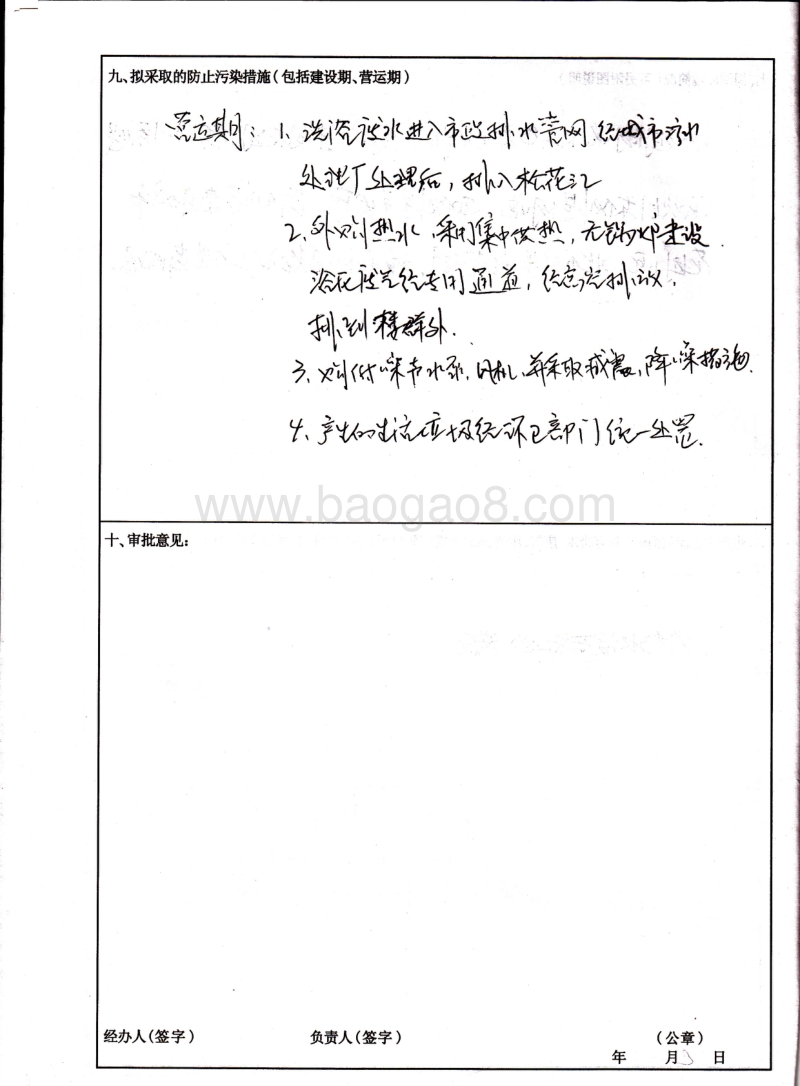 九、拟采取的防止污染措施(包括建设期、营运期)
营运期: 1、洗浴废水进入市政排水管网 经城市污水
处理厂处理后, 排入松花江
2、外购热水, 采用集中供热, 无锅炉建设.
浴区废气经专用通道, 经 排,
排到楼群外.
3、购低噪声水泵, 风机, 并采取减震, 降噪措施.
4、产生的生活垃圾经环卫部门统一处置.
www.baogao8.com
十、审批意见:
经办人(签字) 负责人(签字) (公章)
年 月 日